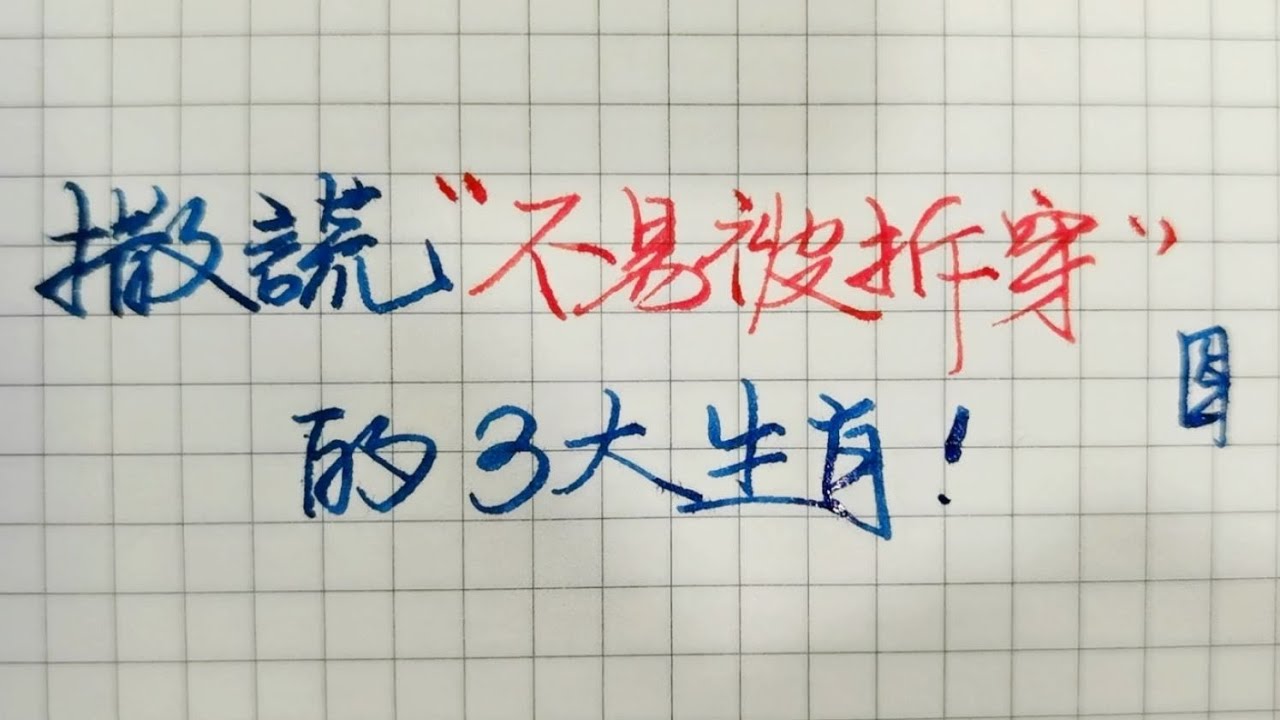 撒謊“不易被拆穿”
的3大生肖！